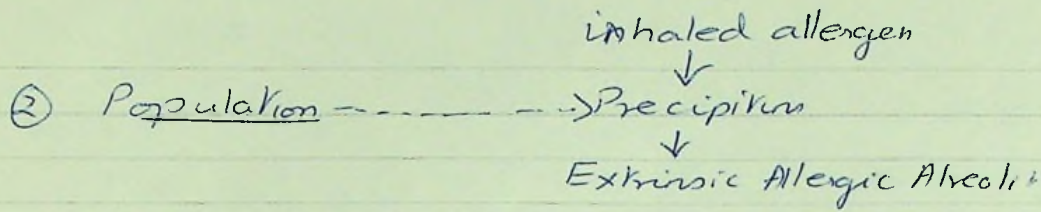 inhaled allergen
↓
② Population - - - - - - → Precipitins
↓
Extrinsic Allergic Alveoli